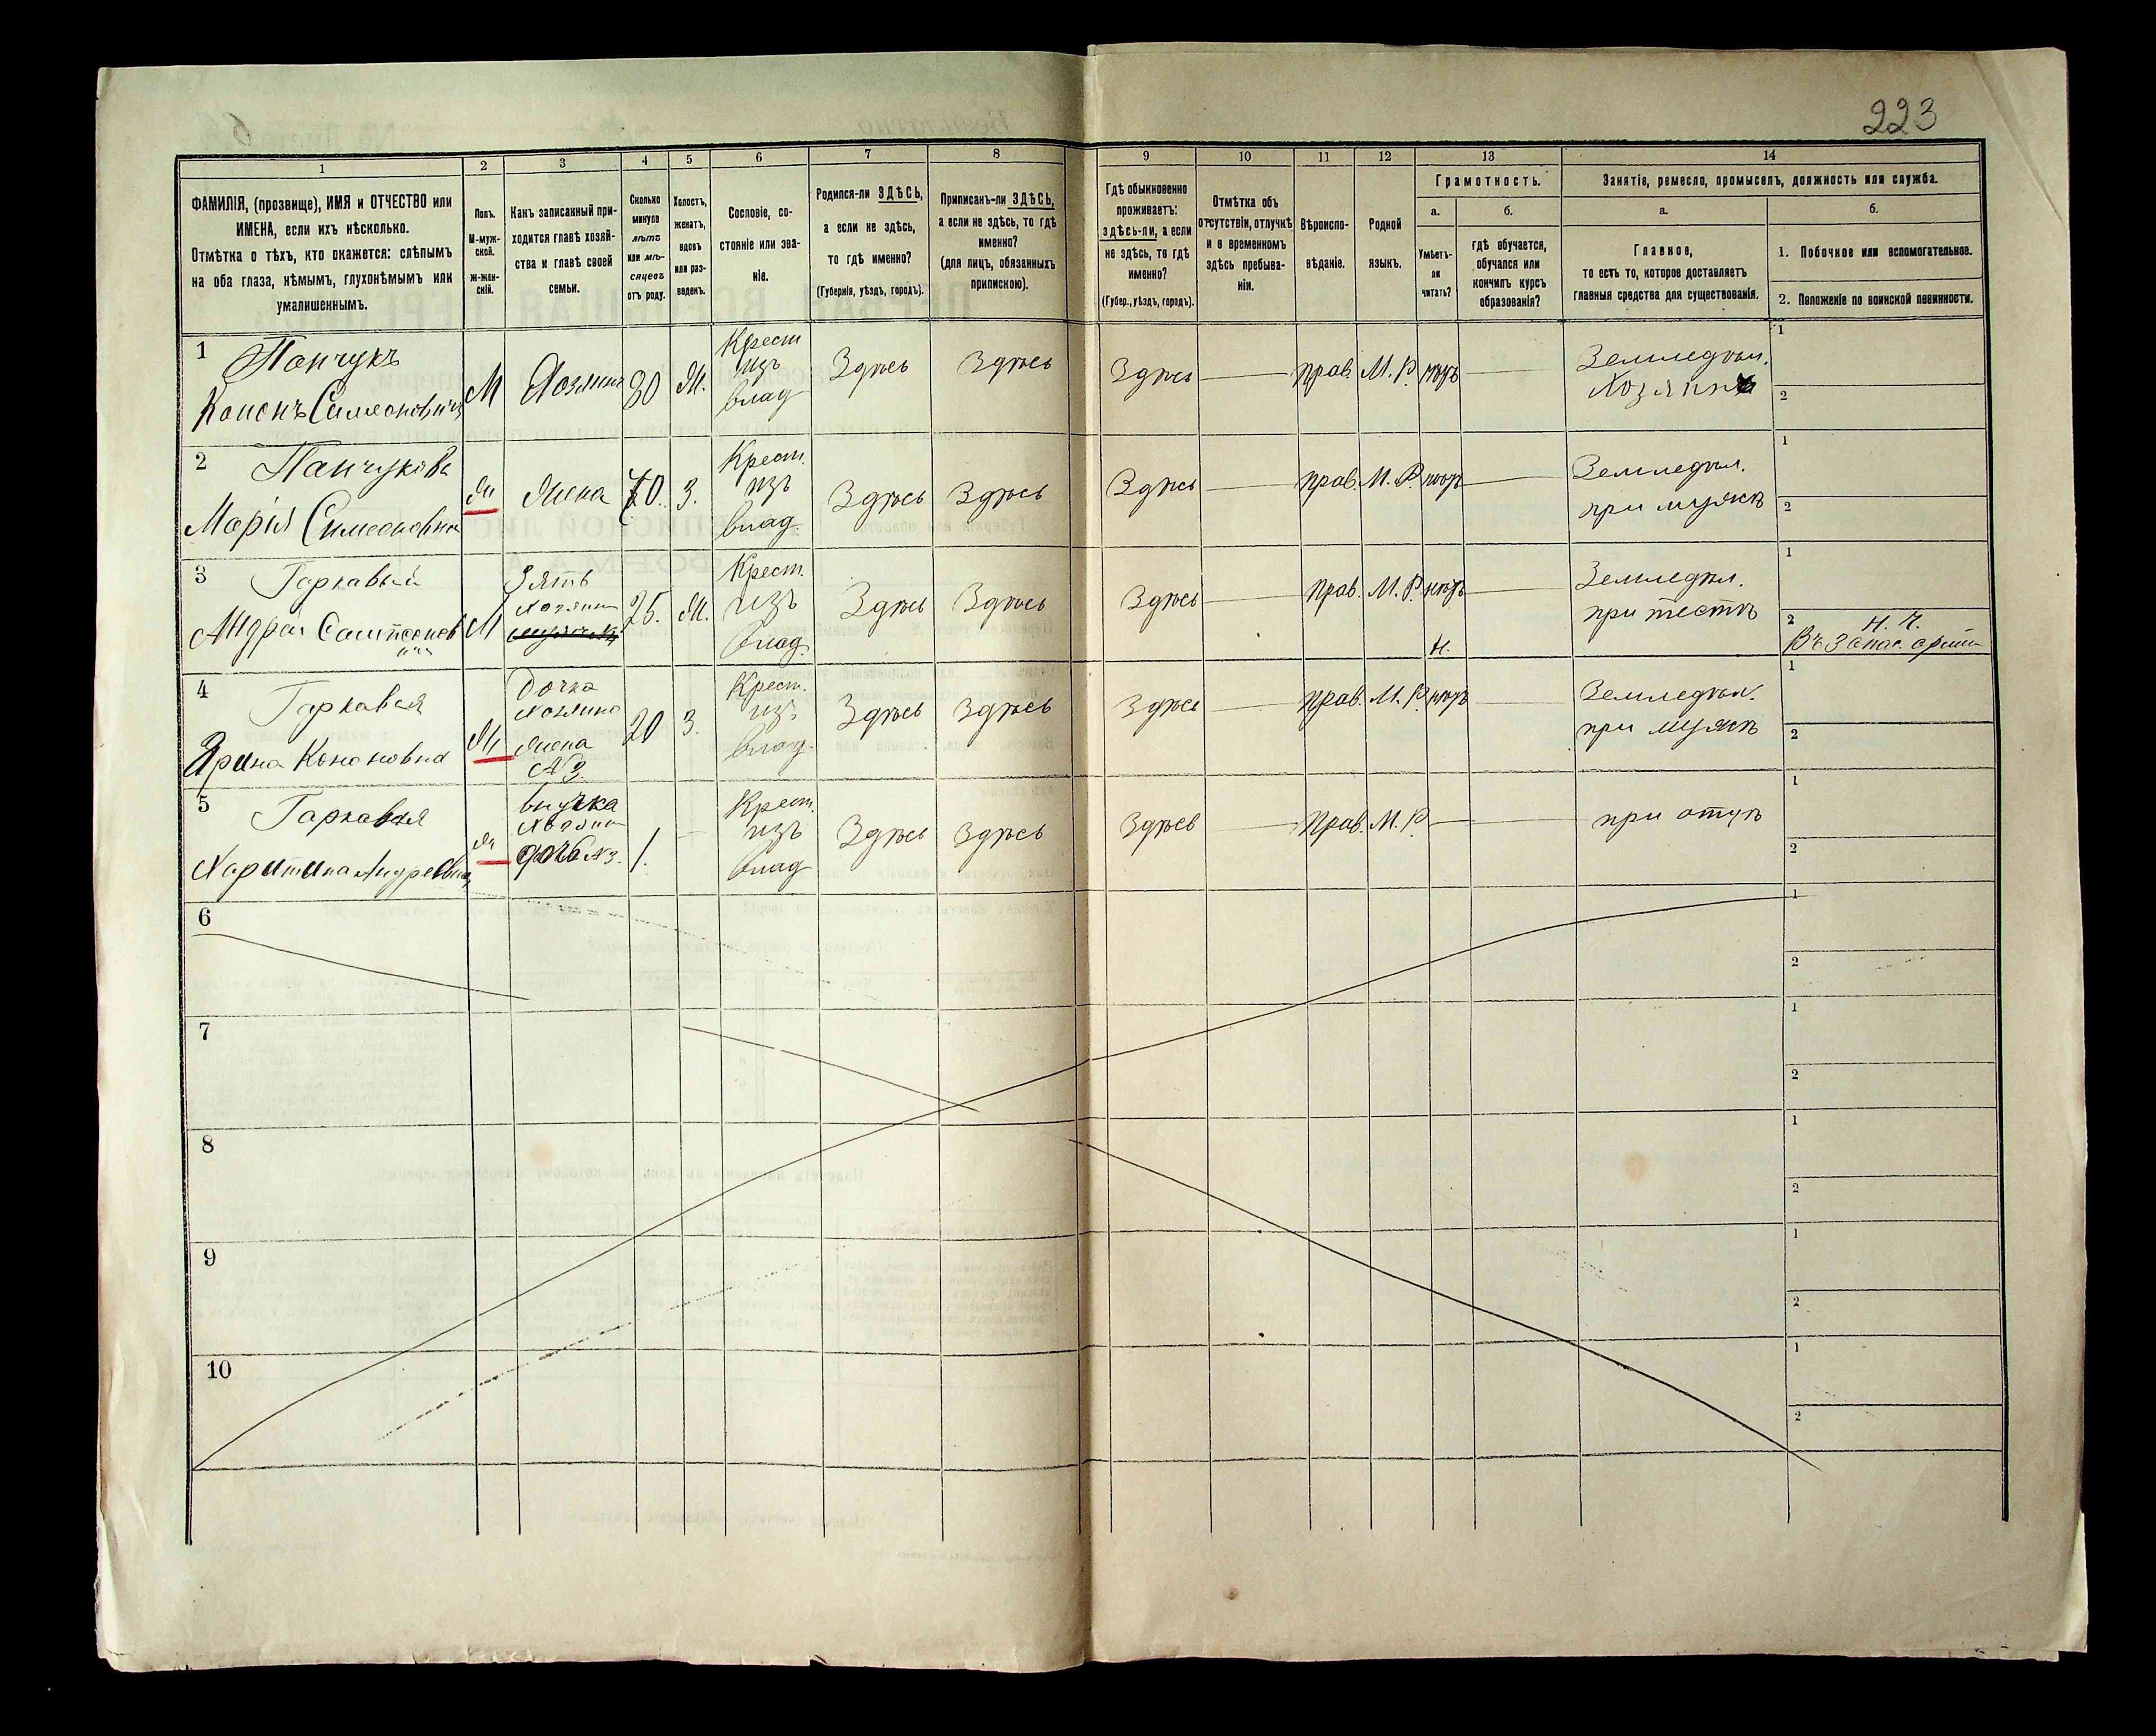 223
1
2
3
4
5
6
7
8
9
10
11
12
13
14
ФАМИЛІЯ, (прозвище), ИМЯ и ОТЧЕСТВО или
ИМЕНА, если ихъ нѣсколько.
Отмѣтка о тѣхъ, кто окажется: слѣпымъ
на оба глаза, нѣмымъ, глухонѣмымъ или
умалишеннымъ.
Полъ.
М-муж-
ской.
ж-жен-
скій.
Какъ записанный при-
ходится главѣ хозяй-
ства и главѣ своей
семьи.
Сколько
минуло
лѣтъ
или мѣ-
сяцевъ
отъ роду.
Холостъ,
женатъ,
вдовъ
или раз-
веденъ.
Сословіе, со-
стояніе или зва-
ніе.
Родился-ли ЗДѢСЬ,
а если не здѣсь,
то гдѣ именно?
(Губернія, уѣздъ, городъ).
Приписанъ-ли ЗДѢСЬ,
а если не здѣсь, то гдѣ
именно?
(для лицъ, обязанныхъ
припискою).
Гдѣ обыкновенно
проживаетъ:
здѣсь-ли, а если
не здѣсь, то гдѣ
именно?
(Губер., уѣздъ, городъ).
Отмѣтка объ
отсутствіи, отлучкѣ
и о временномъ
здѣсь пребыва-
ніи.
Вѣроиспо-
вѣданіе.
Родной
языкъ.
Грамотность.
а.
Умѣетъ-
ли
читать?
б.
гдѣ обучается,
обучался или
кончилъ курсъ
образованія?
Занятіе, ремесло, промыселъ, должность или служба.
а.
Главное,
то есть то, которое доставляетъ
главныя средства для существованія.
б.
1. Побочное или вспомогательное.
2. Положеніе по воинской повинности.
1
Панчукъ
Кононъ Симеоновичъ
М
Хозяинъ
80
Ж.
Крест
изъ
влад
Здѣсь
Здѣсь
Здѣсь
прав.
М. Р.
нѣтъ
Земледѣл.
Хозяинъ
1
2
2
Панчукова
Марія Симеоновна
Ж
Жена
70.
З.
Крест.
изъ
влад.
Здѣсь
Здѣсь
Здѣсь
прав.
М. Р.
нѣтъ
Земледѣл.
при мужѣ
1
2
3
Гаркавый
Андрей Сампсонов
ичъ
М
Зять
хозяина
25.
Ж.
Крест.
изъ
влад.
Здѣсь
Здѣсь
Здѣсь
прав.
М. Р.
нѣтъ
Н.
Земледѣл.
при тестѣ
1
2
Н. Ч.
Въ Запас. арміи
4
Гаркавая
Ярина Кононовна
Ж
Дочка
хозяина
жена
№ 3.
20
З.
Крест.
изъ
влад.
Здѣсь
Здѣсь
Здѣсь
прав.
М. Р.
нѣтъ
Земледѣл.
при мужѣ
1
2
5
Гаркавая
Харитина Андреевна
Ж
внучка
хозяин
дочь №3.
1.
Крест.
изъ
влад
Здѣсь
Здѣсь
Здѣсь
прав.
М. Р.
при отцѣ
1
2
6
1
2
7
1
2
8
1
2
9
1
2
10
1
2